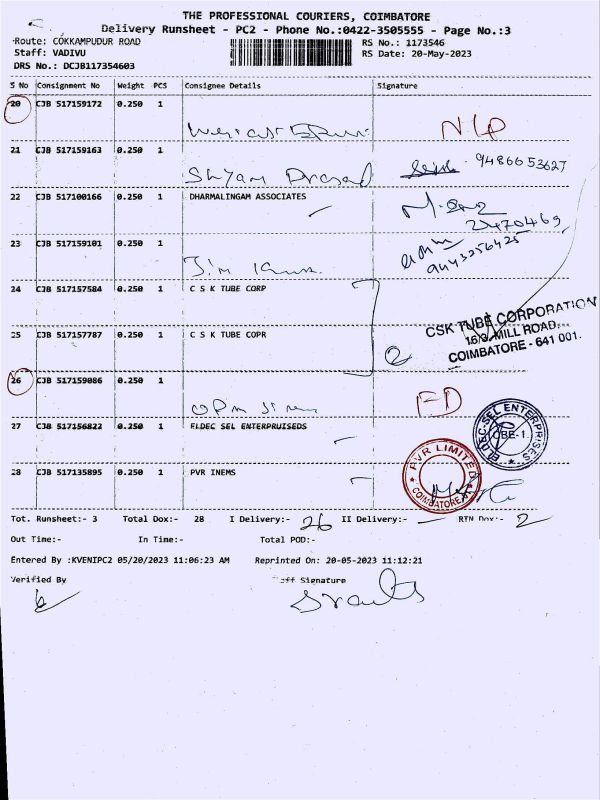 THE PROFESSIONAL COURIERS, COIMBATORE
Delivery Runsheet - PC2 - Phone No.:0422-3505555 - Page No.:3
Route: COKKAMPUDUR ROAD RS No.: 1173546
Staff: VADIVU RS Date: 20-May-2023
DRS No.: DCJB117354603
S No Consignment No Weight PCS Consignee Details Signature
20 CJB 517159172 0.250 1
21 CJB 517159163 0.250 1
Shyam Prasad 9486653627
22 CJB 517100166 0.250 1 DHARMALINGAM ASSOCIATES
2470469
23 CJB 517159101 0.250 1
9443256425
24 CJB 517157584 0.250 1 C S K TUBE CORP
CSK TUBE CORPORATION
16/3, MILL ROAD,
COIMBATORE - 641 001.
25 CJB 517157787 0.250 1 C S K TUBE COPR
2
26 CJB 517159086 0.250 1
FD
27 CJB 517156822 0.250 1 ELDEC SEL ENTERPRUISEDS
ELDEC-SEL ENTERPRISES
CBE-1.
28 CJB 517135895 0.250 1 PVR INEMS
PVR LIMITED
COIMBATORE
Tot. Runsheet:- 3 Total Dox:- 28 I Delivery:- 26 II Delivery:- — RTN Dox:- 2
Out Time:- In Time:- Total POD:-
Entered By :KVENIPC2 05/20/2023 11:06:23 AM Reprinted On: 20-05-2023 11:12:21
Verified By Signature